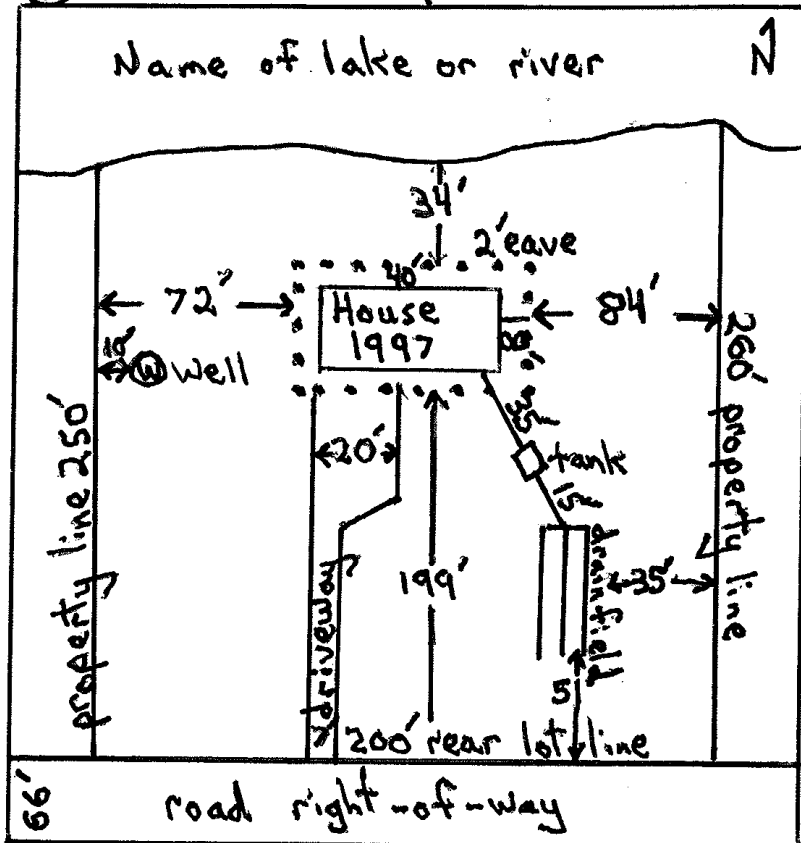 Name of lake or river
N
34'
2' eave
40'
72'
House
1997
84'
10'
W well
260' property line
property line 250'
35'
20'
tank
15'
199'
driveway
drainfield
35'
5
200' rear lot line
66'
road right-of-way